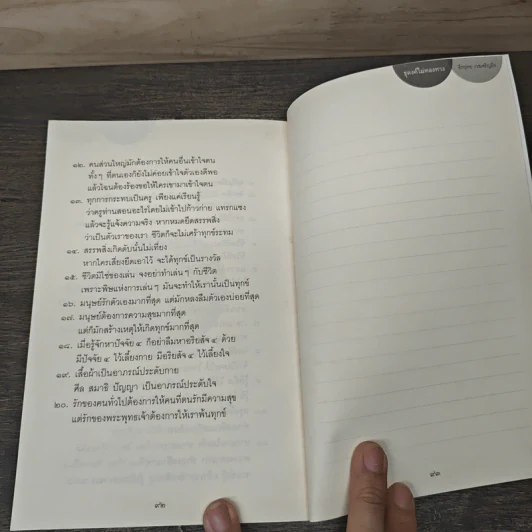 ๑๒. คนส่วนใหญ่มักต้องการให้คนอื่นเข้าใจตน
ทั้งๆ ที่ตนเองก็ยังไม่ค่อยเข้าใจตัวเองดีพอ
แล้วไฉนต้องร้องขอให้ใครเขามาเข้าใจตน
๑๓. ทุกการกระทบเป็นครู เพียงแค่เรียนรู้
ว่าครูท่านสอนอะไรโดยไม่เข้าไปก้าวก่าย แทรกแซง
แล้วจะรู้แจ้งความจริง หากหมดยึดสรรพสิ่ง
ว่าเป็นตัวเราของเรา ชีวิตก็จะไม่เศร้าทุกข์ระทม
๑๔. สรรพสิ่งเกิดดับนั้นไม่เที่ยง
หากใครเสี่ยงยึดเอาไว้ จะได้ทุกข์เป็นรางวัล
๑๕. ชีวิตมิใช่ของเล่น จงอย่าทำเล่นๆ กับชีวิต
เพราะพิษแห่งการเล่นๆ มันจะทำให้เรานั้นเป็นทุกข์
๑๖. มนุษย์รักตัวเองมากที่สุด แต่มักหลงลืมตัวเองบ่อยที่สุด
๑๗. มนุษย์ต้องการความสุขมากที่สุด
แต่ก็มักสร้างเหตุให้เกิดทุกข์มากที่สุด
๑๘. เมื่อรู้จักหาปัจจัย ๔ ก็อย่าลืมหาอริยสัจ ๔ ด้วย
มีปัจจัย ๔ ไว้เลี้ยงกาย มีอริยสัจ ๔ ไว้เลี้ยงใจ
๑๙. เสื้อผ้าเป็นอาภรณ์ประดับกาย
ศีล สมาธิ ปัญญา เป็นอาภรณ์ประดับใจ
๒๐. รักของคนทั่วไปต้องการให้คนที่ตนรักมีความสุข
แต่รักของพระพุทธเจ้าต้องการให้เราพ้นทุกข์
๙๒
ธุดงค์ไม่หลงทาง
๙๓